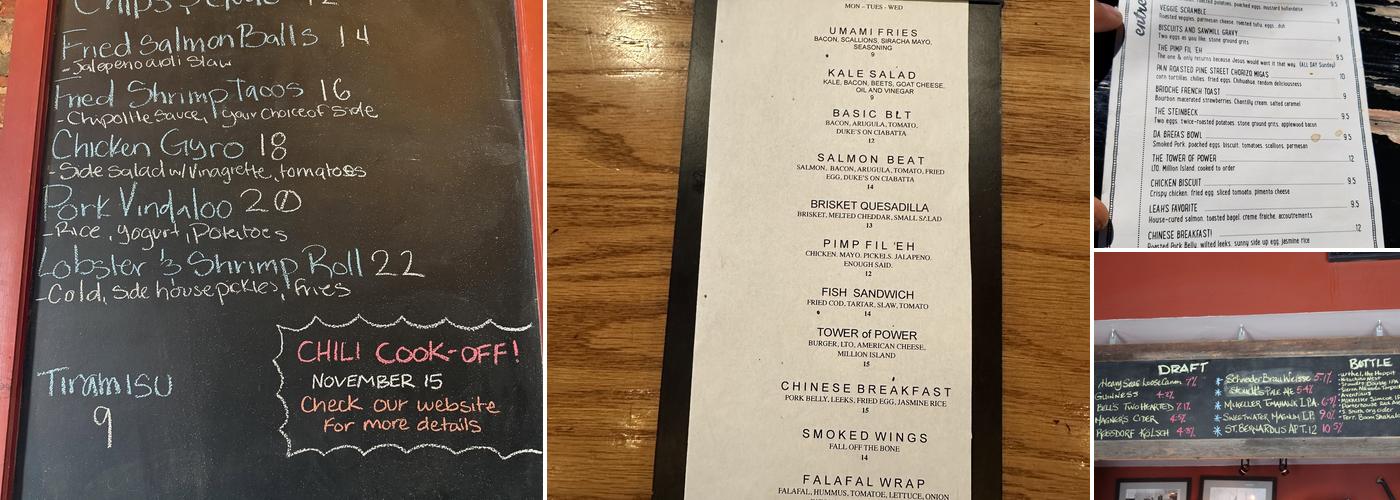 Fried Salmon Balls 14
-Jalepeno aioli slaw
Fried Shrimp Tacos 16
-Chipotle sauce, your choice of side
Chicken Gyro 18
-Side salad w/ vinagrette, tomatoes
Pork Vindaloo 20
-Rice, yogurt, Potatoes
Lobster & Shrimp Roll 22
-Cold, side house pickles, fries
Tiramisu
9
CHILI COOK-OFF!
NOVEMBER 15
Check our website
For more details
MON - TUES - WED
UMAMI FRIES
BACON, SCALLIONS, SIRACHA MAYO,
SEASONING
9
KALE SALAD
KALE, BACON, BEETS, GOAT CHEESE,
OIL AND VINEGAR
9
BASIC BLT
BACON, ARUGULA, TOMATO,
DUKE'S ON CIABATTA
12
SALMON BEAT
SALMON, BACON, ARUGULA, TOMATO, FRIED
EGG, DUKE'S ON CIABATTA
14
BRISKET QUESADILLA
BRISKET, MELTED CHEDDAR, SMALL SALAD
13
PIMP FIL 'EH
CHICKEN. MAYO. PICKELS. JALAPENO.
ENOUGH SAID.
12
FISH SANDWICH
FRIED COD, TARTAR, SLAW, TOMATO
14
TOWER of POWER
BURGER, LTO, AMERICAN CHEESE,
MILLION ISLAND
15
CHINESE BREAKFAST
PORK BELLY, LEEKS, FRIED EGG, JASMINE RICE
15
SMOKED WINGS
FALL OFF THE BONE
14
FALAFAL WRAP
FALAFAL, HUMMUS, TOMATOE, LETTUCE, ONION
entre
9.5
VEGGIE SCRAMBLE
Roasted veggies, parmesan cheese, roasted tofu, eggs...duh 9
BISCUITS AND SAWMILL GRAVY
Two eggs as you like, stone ground grits 9
THE PIMP FIL 'EH
The one & only returns because Jesus would want it that way. (ALL DAY Sunday) 9.5
PAN ROASTED PINE STREET CHORIZO MIGAS 10
corn tortillas, chilies, fried eggs, Chihuahua, random deliciousness
BRIOCHE FRENCH TOAST 9
Bourbon macerated strawberries, Chantilly cream, salted caramel
THE STEINBECK 9
Two eggs, twice-roasted potatoes, stone ground grits, applewood bacon
DA BREFA'S BOWL 9.5
Smoked Pork, poached eggs, biscuit, tomatoes, scallions, parmesan
THE TOWER OF POWER 12
LTO, Million Island, cooked to order
CHICKEN BISCUIT 9.5
Crispy chicken, fried egg, sliced tomato, pimento cheese
LEAH'S FAVORITE 9.5
House-cured salmon, toasted bagel, creme fraiche, accoutrements
CHINESE BREAKFAST! 12
Roasted Pork Belly, wilted leeks, sunny side up egg, jasmine rice
DRAFT
Heavy Seas Loose Cannon 7%
GUINNESS 4.2%
BELL'S TWO HEARTED 7.1%
MAGNER'S CIDER 4.5%
REISSDORF KÖLSCH 4.8%
Schneider Brau Weisse 5.1%
PALE ALE 5.4%
MIKELLER TOMAHAWK I.P.A.
SWEETWATER
ST. BERNARDUS APT. 12 10.5%
BOTTLE